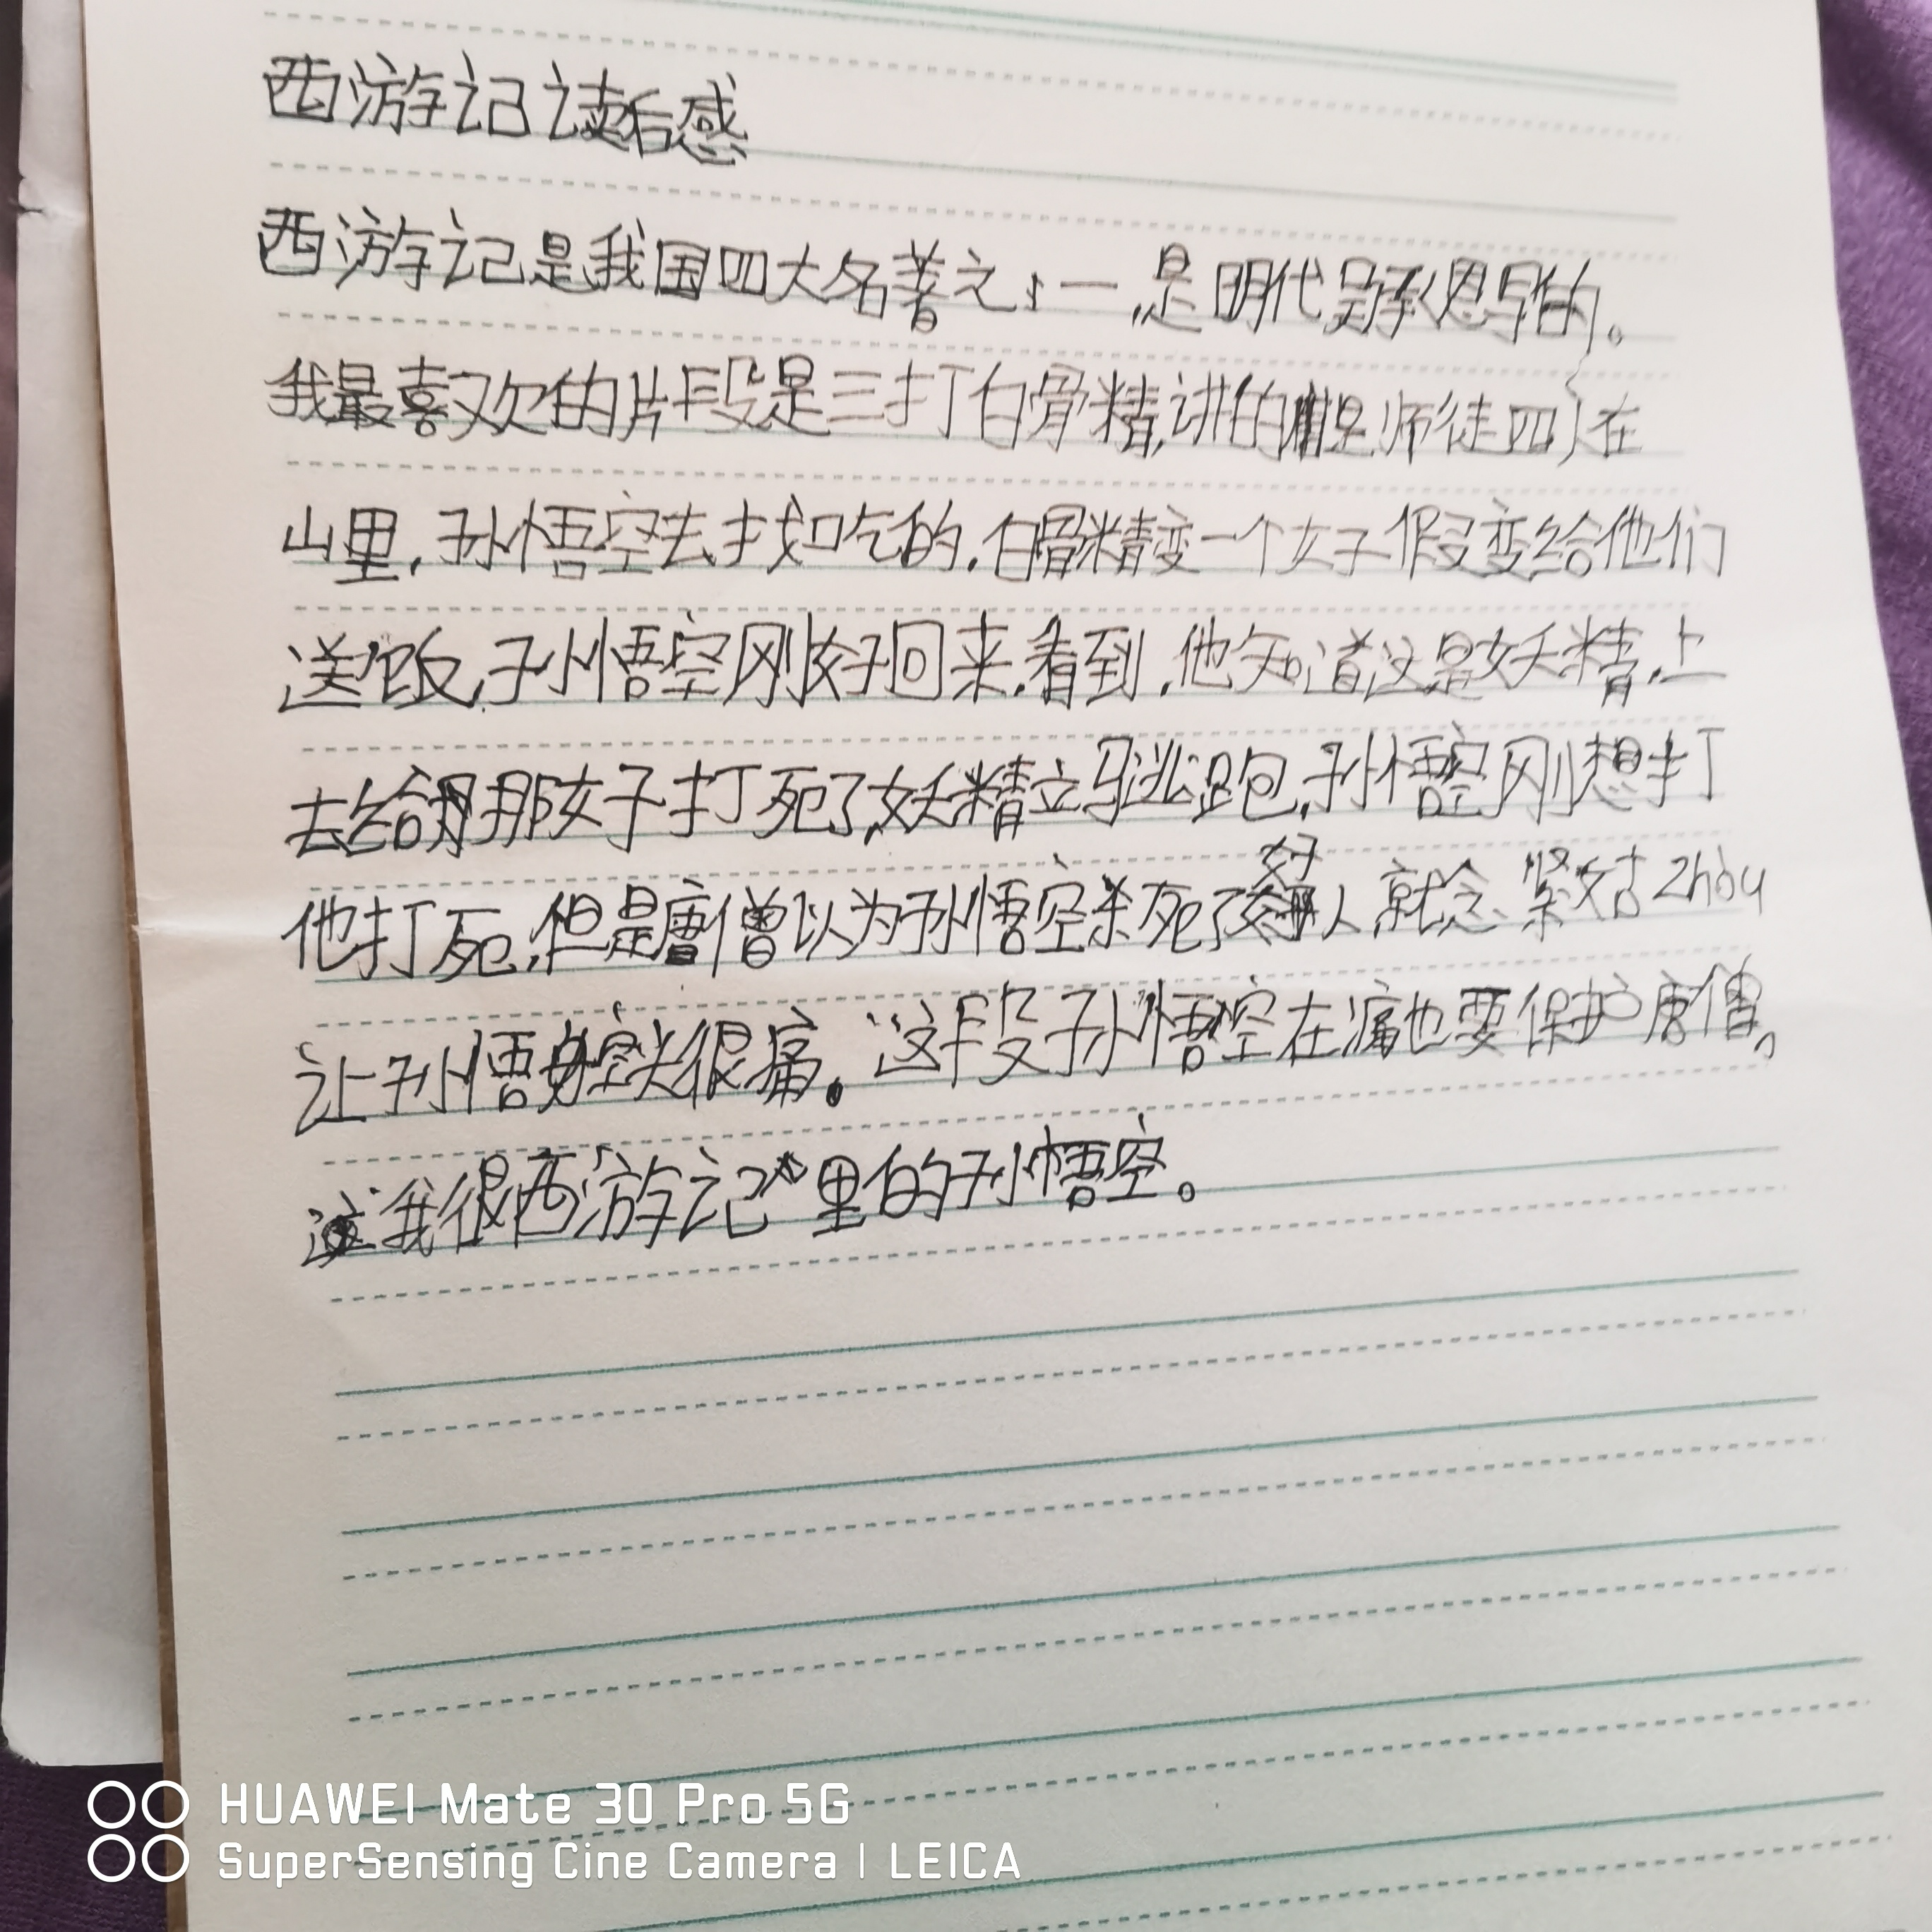 西游记读后感
西游记是我国四大名著之一,是明代吴承恩写的。
我最喜欢的片段是三打白骨精,讲的是师徒四人在
山里,孙悟空去找吃的,白骨精变一个女子假变给他们
送饭,孙悟空刚好回来,看到,他知道这是妖精,上
去给那女子打死了,妖精立马逃跑,孙悟空刚想打
他打死,但是唐僧以为孙悟空杀死了好人就念紧箍zhòu
让孙悟空头很痛。这段孙悟空在痛也要保护唐僧。
我很西游记里的孙悟空。
HUAWEI Mate 30 Pro 5G
SuperSensing Cine Camera | LEICA